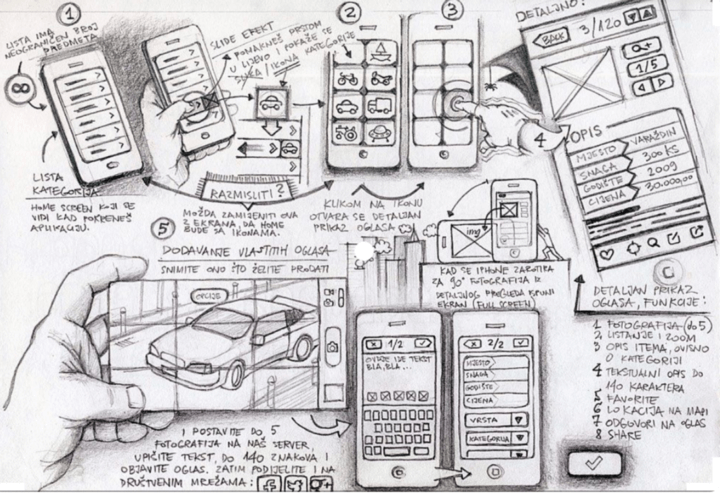 1
LISTA IMA
NEOGRANIČEN BROJ
PREDMETA
∞
LISTA
KATEGORIJA
HOME SCREEN KOJI SE
VIDI KAD POKRENEŠ
APLIKACIJU.
SLIDE EFEKT
POMAKNEŠ PRSTOM
U LIJEVO I POKAŽE SE
/ IKONA KATEGORIJE
RAZMISLITI?
MOŽDA ZAMIJENITI OVA
2 EKRANA, DA HOME
BUDE SA IKONAMA.
2
3
KLIKOM NA IKONU
OTVARA SE DETALJAN
PRIKAZ OGLASA
4
DETALJNO:
BACK
3/120
1/5
OPIS
MJESTO VARAŽDIN
SNAGA 300 KS
GODIŠTE 2009
CIJENA 30.000,00
img
KAD SE IPHONE ZAROTIRA
ZA 90° FOTOGRAFIJA IZ
DETALJNOG PREGLEDA ISPUNI
EKRAN (FULL SCREEN)
DETALJAN PRIKAZ
OGLASA, FUNKCIJE:
1 FOTOGRAFIJA (do 5)
2 LISTANJE I ZOOM
3 OPIS ITEMA, OVISNO
O KATEGORIJI
4 TEKSTUALNI OPIS DO
140 KARAKTERA
5 FAVORITE
6 LOKACIJA NA MAPI
7 ODGOVORI NA OGLAS
8 SHARE
5
DODAVANJE VLASTITIH OGLASA
SNIMITE ONO ŠTO ŽELITE PRODATI
OPCIJE
1/2
OVDJE IDE TEKST
BLA, BLA...
2/2
MJESTO
SNAGA
GODIŠTE
CIJENA
VRSTA
KATEGORIJA
I POSTAVITE DO 5
FOTOGRAFIJA NA NAŠ SERVER,
UPIŠITE TEKST, DO 140 ZNAKOVA I
OBJAVITE OGLAS. ZATIM PODIJELITE I NA
DRUŠTVENIM MREŽAMA: